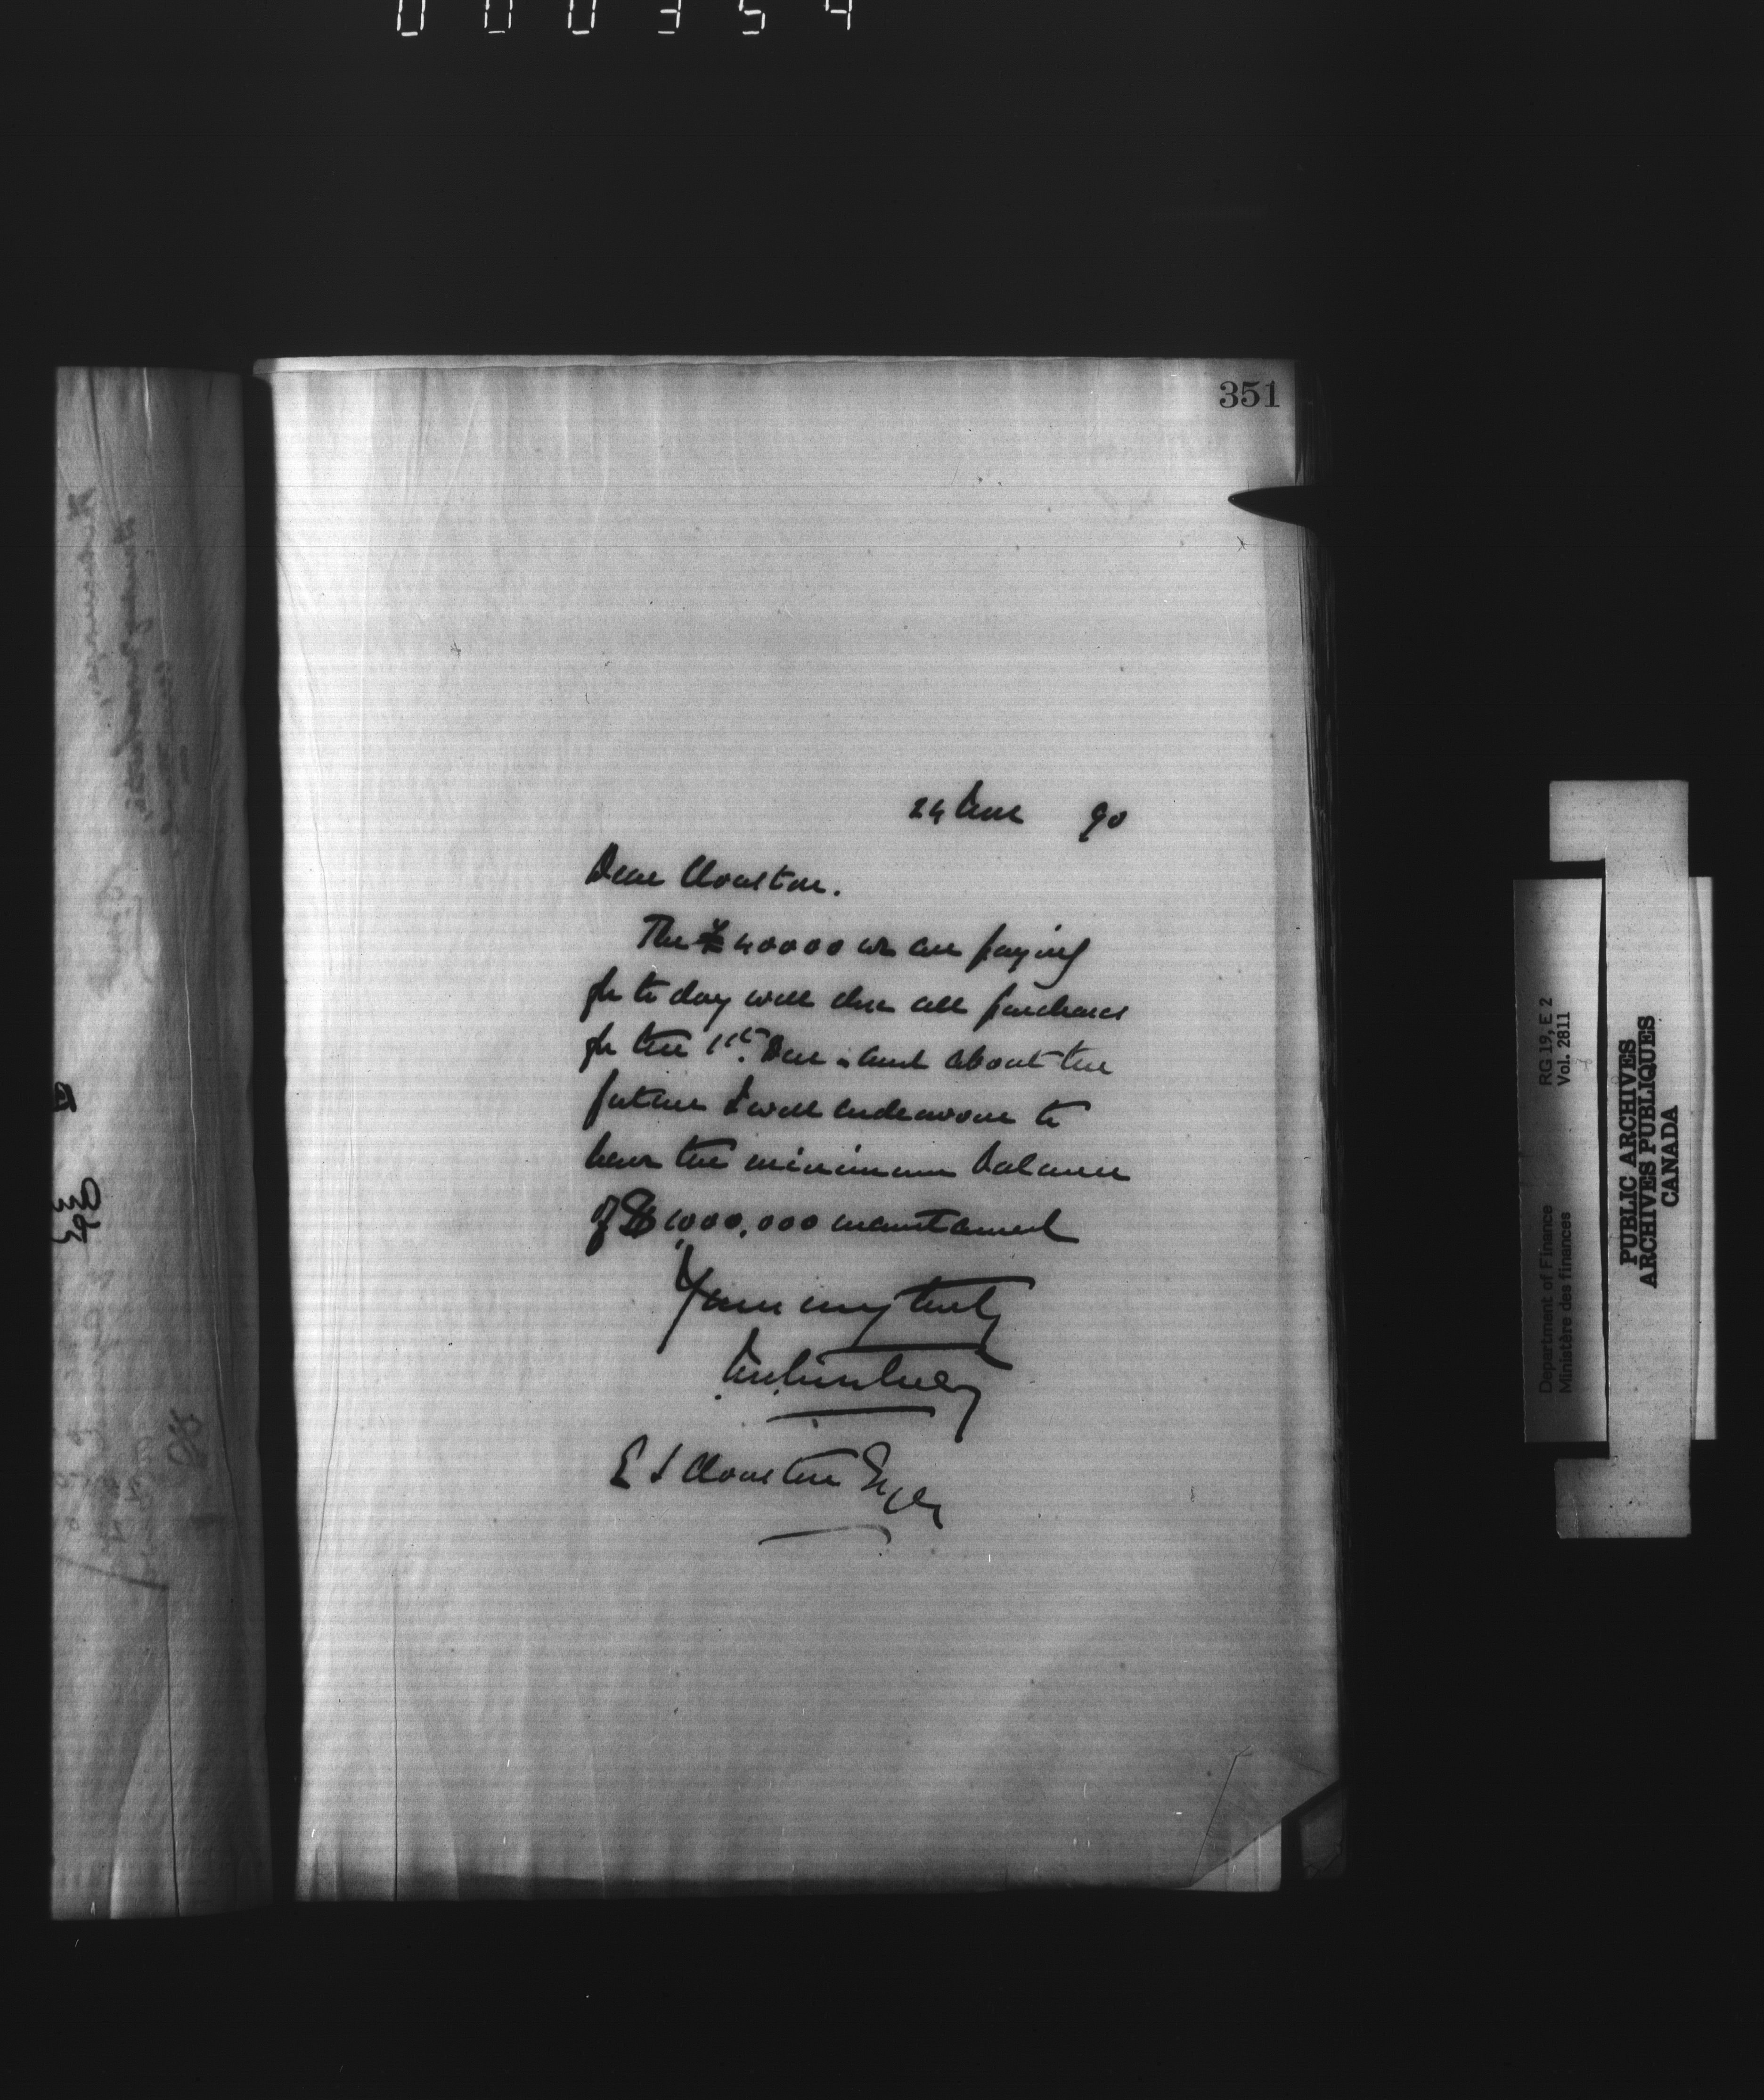 000354
351
24 Nov 90
Dear Clouston.
The £40000 we are paying
for to day will close all purchases
for the 1st. Dec. and about the
future I will endeavour to
have the minimum balance
of $1,000,000 maintained
Yours very truly
E S Clouston Esq
RG 19, E 2
Vol. 2811
Department of Finance
Ministère des finances
PUBLIC ARCHIVES
ARCHIVES PUBLIQUES
CANADA